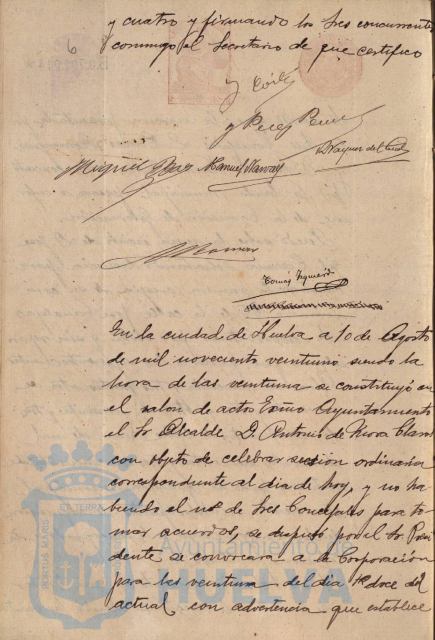 6
y cuatro y firmando los tres concurrentes
conmigo el Secretario de que certifico
y Cortes
y Perez
Miguel Manuel Narvaez Vazquez del
Tomás Izquierdo
En la ciudad de Huelva a 10 de Agosto
de mil noveciento veintiuno siendo la
hora de las veintiuna se constituyó en
el salon de actos Exmo Ayuntamiento
el Sr Alcalde D. Antonio de Mora Claros
con objeto de celebrar sesión ordinaria
correspondiente al dia de hoy, y no ha
biendo el nº de tres Concejales para to
mar acuerdos, se dispuso por el Sr Presi
dente se convocara a la Corporación
para las veintiuna del dia doce del
actual con advertencia que establece
PORTUS MARIS ET TERRÆ
HUELVA